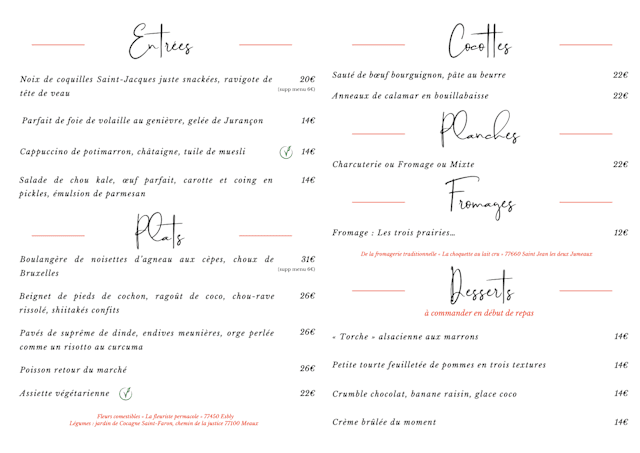 Entrées
Noix de coquilles Saint-Jacques juste snackées, ravigote de 20€
tête de veau (supp menu 6€)
Parfait de foie de volaille au genièvre, gelée de Jurançon 14€
Cappuccino de potimarron, châtaigne, tuile de muesli 14€
Salade de chou kale, œuf parfait, carotte et coing en 14€
pickles, émulsion de parmesan
Plats
Boulangère de noisettes d'agneau aux cèpes, choux de 31€
Bruxelles (supp menu 6€)
Beignet de pieds de cochon, ragoût de coco, chou-rave 26€
rissolé, shiitakés confits
Pavés de suprême de dinde, endives meunières, orge perlée 26€
comme un risotto au curcuma
Poisson retour du marché 26€
Assiette végétarienne 22€
Fleurs comestibles « La fleuriste permacole » 77450 Esbly
Légumes : jardin de Cocagne Saint-Faron, chemin de la justice 77100 Meaux
Cocottes
Sauté de bœuf bourguignon, pâte au beurre 22€
Anneaux de calamar en bouillabaisse 22€
Planches
Charcuterie ou Fromage ou Mixte 22€
Fromages
Fromage : Les trois prairies... 12€
De la fromagerie traditionnelle « La choquette au lait cru » 77660 Saint Jean les deux Jumeaux
Desserts
à commander en début de repas
« Torche » alsacienne aux marrons 14€
Petite tourte feuilletée de pommes en trois textures 14€
Crumble chocolat, banane raisin, glace coco 14€
Crème brûlée du moment 14€